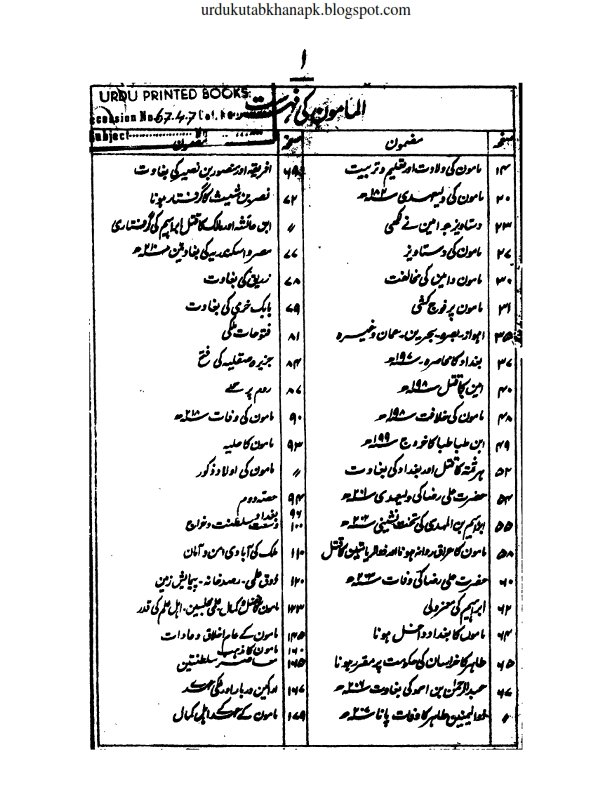 urdukutabkhanapk.blogspot.com
۱
URDU PRINTED BOOKS
المامون کی فہرست
Accession No. 6747 Cat. No.
Subject
صفحہ مضمون
۱۴ مامون کی ولادت اور تعلیم و تربیت
۲۰ مامون کی ولیعہدی ۱۸۲ھ
۲۳ دستاویز جو امین نے لکھی
۲۷ مامون کی دستاویز
۳۰ مامون و امین کی مخالفت
۳۱ مامون پر فوج کشی
۳۵ اہواز۔بصرہ۔بحرین۔عمان وغیرہ
۳۷ بغداد کا محاصرہ ۱۹۷ھ
۴۰ امین کا قتل ۱۹۸ھ
۴۸ مامون کی خلافت ۱۹۸ھ
۴۹ ابن طباطبا کا خروج ۱۹۹ھ
۵۲ ہرثمہ کا قتل اور بغداد کی بغاوت
۵۴ حضرت علی رضا کی ولیعہدی ۲۰۱ھ
۵۵ ابراہیم بن المہدی کی تخت نشینی
۵۸ مامون کا عراق روانہ ہونا اور ذوالریاستین کا قتل
۶۰ حضرت علی رضا کی وفات ۲۰۳ھ
۶۲ ابراہیم کی معزولی
۶۴ مامون کا بغداد داخل ہونا
۶۵ طاہر کا خراسان کی حکومت پر مقرر ہونا
۶۷ عبدالرحمن بن احمد کی بغاوت
〃 ذوالیمنین طاہر کا وفات پانا
صفحہ مضمون
۶۹ افریقہ اور منصور بن نصیر کی بغاوت
۷۲ نصر بن شیث کا گرفتار ہونا
〃 ابن عائشہ اور مالک کا قتل ابراہیم کی گرفتاری
۷۷ مصر و اسکندریہ کی بغاوتین ۲۱۰ھ
۷۸ زریق کی بغاوت
۷۹ بابک خرمی کی بغاوت
۸۱ فتوحات ملکی
۸۴ جزیرہ صقلیہ کی فتح
۸۷ روم پر حملے
۹۰ مامون کی وفات ۲۱۸ھ
۹۳ مامون کا حلیہ
〃 مامون کی اولاد ذکور
۹۴ حصہ دوم
۹۶ بغداد
۱۰۰ وسعت سلطنت و خراج
۱۱۰ ملک کی آبادی امن و امان
۱۲۰ ذوق علمی۔رصد خانہ۔پیمائش زمین
۱۳۳ مامون کا فضل و کمال علمی مجلسین۔اہل علم کی قدر
۱۴۵ مامون کے عام اخلاق و عادات
۱۶۰ مامون کا مذہب
۱۶۵ معاصر سلطنتین
۱۶۷ اراکین دربار اور ملکی عہدے
۱۷۹ مامون کے عہد کے اہل کمال